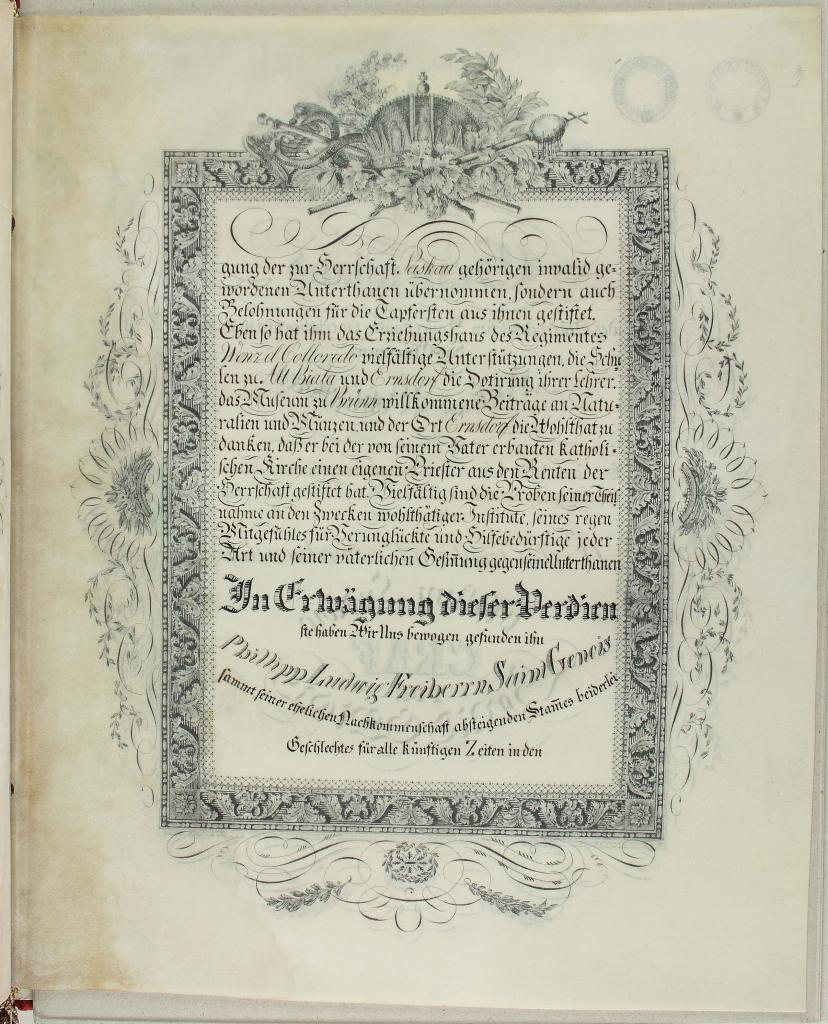 gung der zur Herrschaft Paskau gehörigen invalid ge=
wordenen Unterthanen übernommen, sondern auch
Belohnungen für die Tapfersten aus ihnen gestiftet.
Eben so hat ihm das Erziehungshaus des Regimentes
Wenzel Colloredo vielfältige Unterstützungen, die Schu
len zu Alt Biala und Ernsdorf die Dotirung ihrer Lehrer,
das Museum zu Brünn willkommene Beiträge an Natu=
ralien und Münzen, und der Ort Ernsdorf die Wohlthat zu
danken, daß er bei der von seinem Vater erbauten katholi=
schen Kirche einen eigenen Priester aus den Renten der
Herrschaft gestiftet hat. Vielfältig sind die Proben seiner Theil
nahme an den Zwecken wohlthätiger Institute, seines regen
Mitgefühles für Verunglückte und Hilfebedürftige jeder
Art und seiner väterlichen Gesiñung gegen seine Unterthanen
In Erwägung dieser Verdien
ste haben Wir Uns bewogen gefunden ihn
Phillipp Ludwig Freiherrn Saint Genois
sammt seiner ehelichen Nachkommenschaft absteigenden Stam̃es beiderlei
Geschlechtes für alle künftigen Zeiten in den